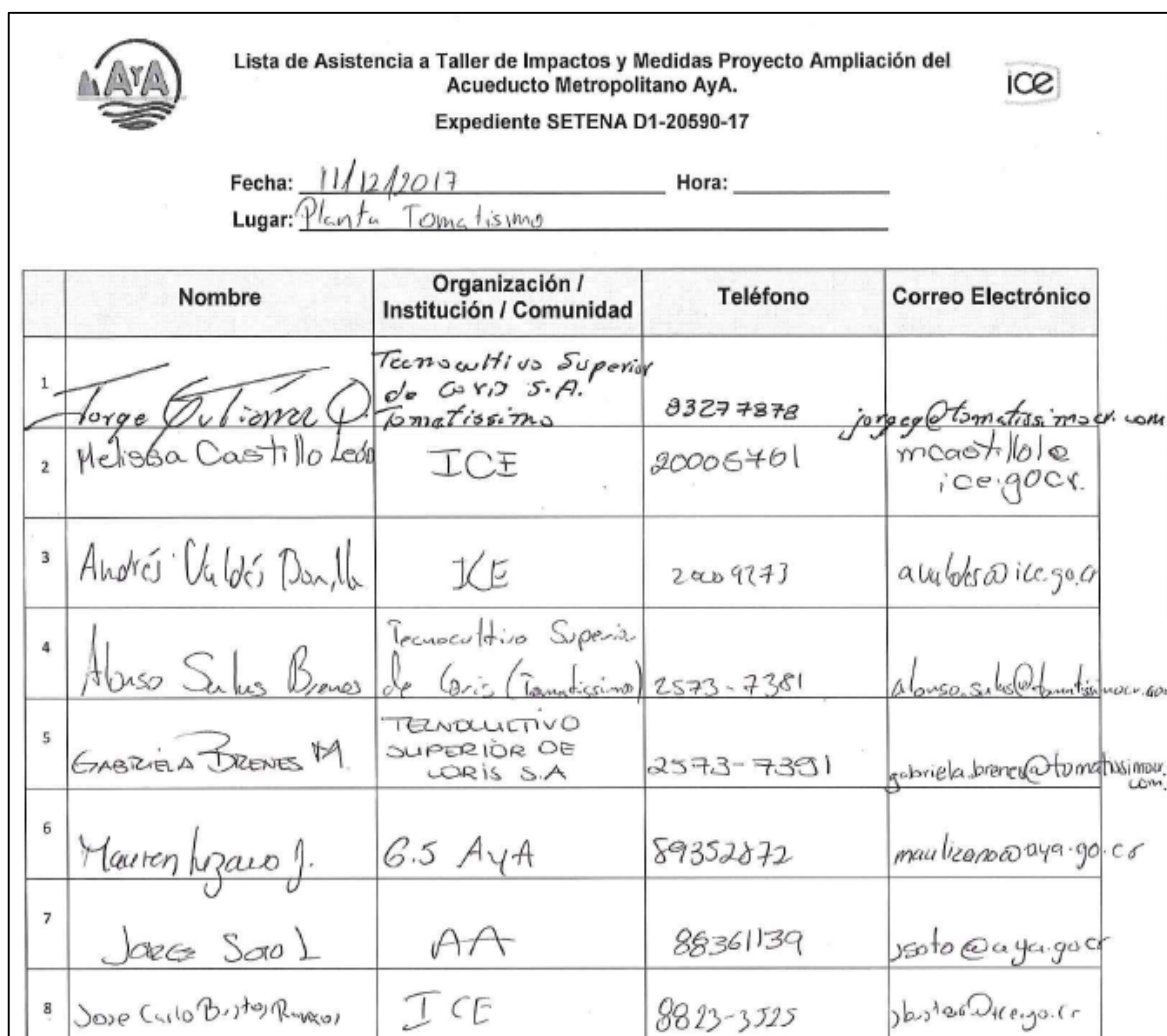 AyA
Lista de Asistencia a Taller de Impactos y Medidas Proyecto Ampliación del
Acueducto Metropolitano AyA.
ice
Expediente SETENA D1-20590-17
Fecha: 11/12/2017 Hora:
Lugar: Planta Tomatisimo
Nombre Organización / Institución / Comunidad Teléfono Correo Electrónico
1 Jorge Gutiérrez Q. Tecnocultivo Superior de Coris S.A. Tomatissimo 83277878 jorgeg@tomatissimocr.com
2 Melissa Castillo León ICE 20006761 mcastillol@ice.go.cr.
3 Andrés Valdés Bonilla ICE 20009273 avaldes@ice.go.cr
4 Alonso Salas Brenes Tecnocultivo Superior de Coris (Tomatissimo) 2573-7381 alonso.salas@tomatissimocr.com
5 GABRIELA BRENES M. SUPERIOR DE CORIS S.A 2573-7391 gabriela.brenes@tomatissimocr.com.
6 Mauren Lizano J. G.S AyA 89352872 maulizano@aya.go.cr
7 Jorge Soto L AA 88361139 jsoto@aya.go.cr
8 Jose Carlo ICE 8823-3525